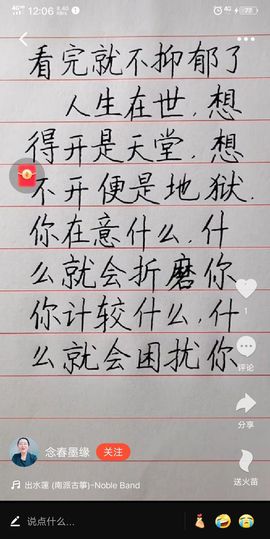 12:06
4G
看完就不抑郁了
人生在世,想
得开是天堂,想
不开便是地狱.
你在意什么,什
么就会折磨你
你计较什么,什
么就会困扰你
1
评论
分享
念春墨缘
关注
出水莲 (南派古筝)-Noble Band
送火苗
说点什么...